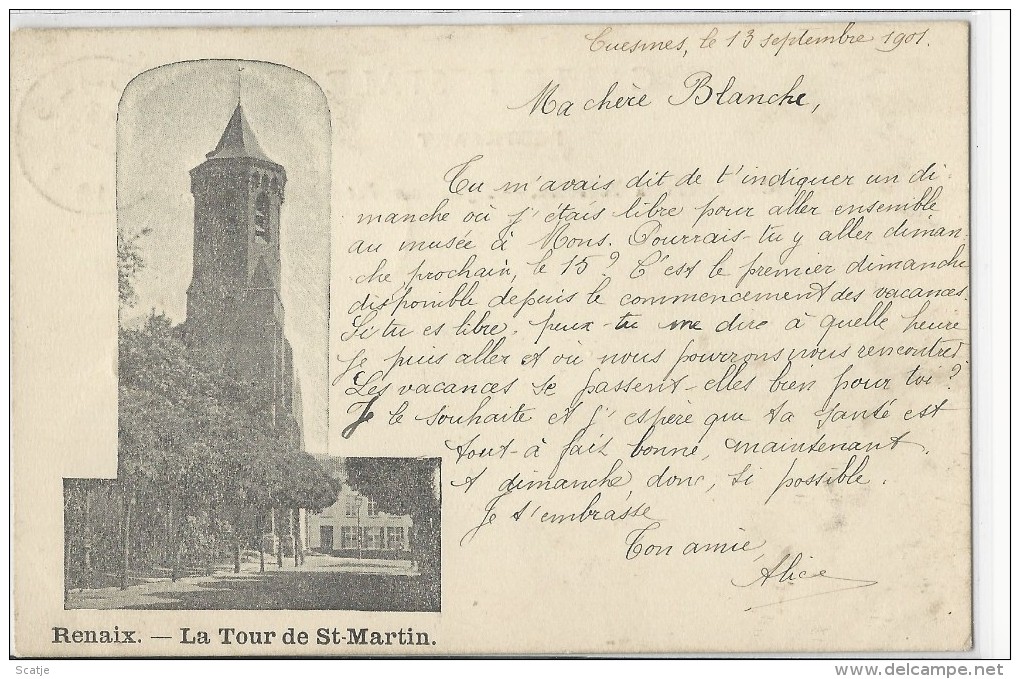 Cuesmes, le 13 septembre 1901.
Ma chère Blanche,
Tu m'avais dit de t'indiquer un di-
manche où j'étais libre pour aller ensemble
au musée à Mons. Pourrais-tu y aller diman-
che, prochain, le 15? C'est le premier dimanche
disponible depuis le commencement des vacances.
Si tu es libre, peux-tu me dire à quelle heure
je puis aller et où nous pourrons nous rencontrer.
Les vacances se passent-elles bien pour toi?
Je le souhaite et j'espère que ta santé est
tout-à fait bonne, maintenant.
A dimanche, donc, si possible.
Je t'embrasse
Ton amie,
Alice
Renaix. — La Tour de St-Martin.
Scatje
http://www.delcampe.net